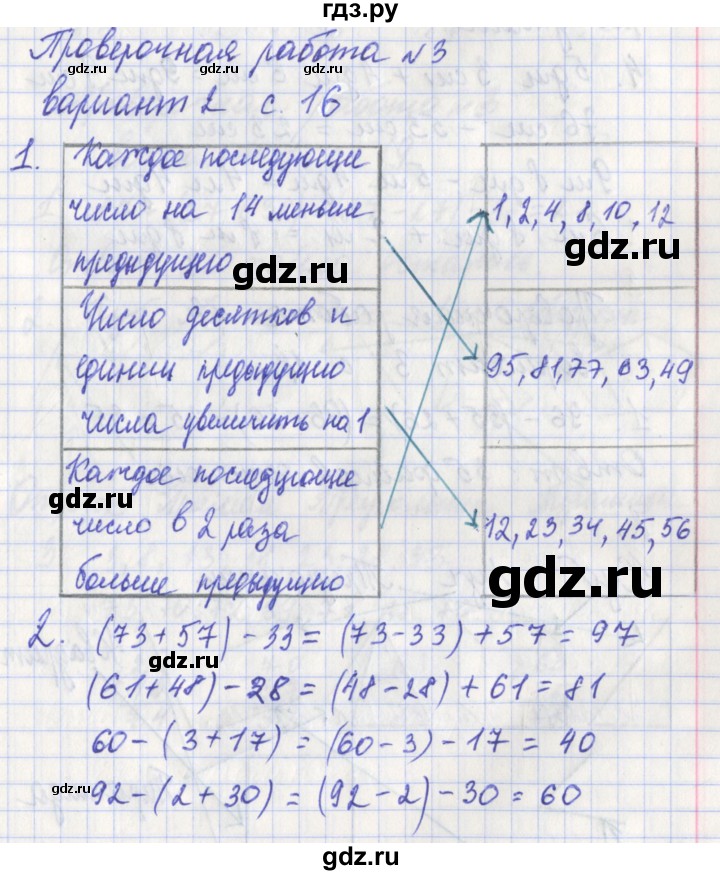 гдз.ру
Проверочная работа №3
вариант 2 с. 16
1.
Каждое последующие
число на 14 меньше
предидущего
gdz.ru
1, 2, 4, 8, 10, 12
gdz.ru
Число десятков и
единиц предыдущио
числа увеличить на 1
95, 81, 77, 63, 49
Каждое последующие
gdz.ru
число в 2 раза
больше предыдущио
12, 23, 34, 45, 56
gdz.ru
2. (73+57)-33=(73-33)+57=97
(61+48)-28=(48-28)+61=81
gdz.ru
60-(3+17)=(60-3)-17=40
92-(2+30)=(92-2)-30=60
gdz.ru
gdz.ru
gdz.ru